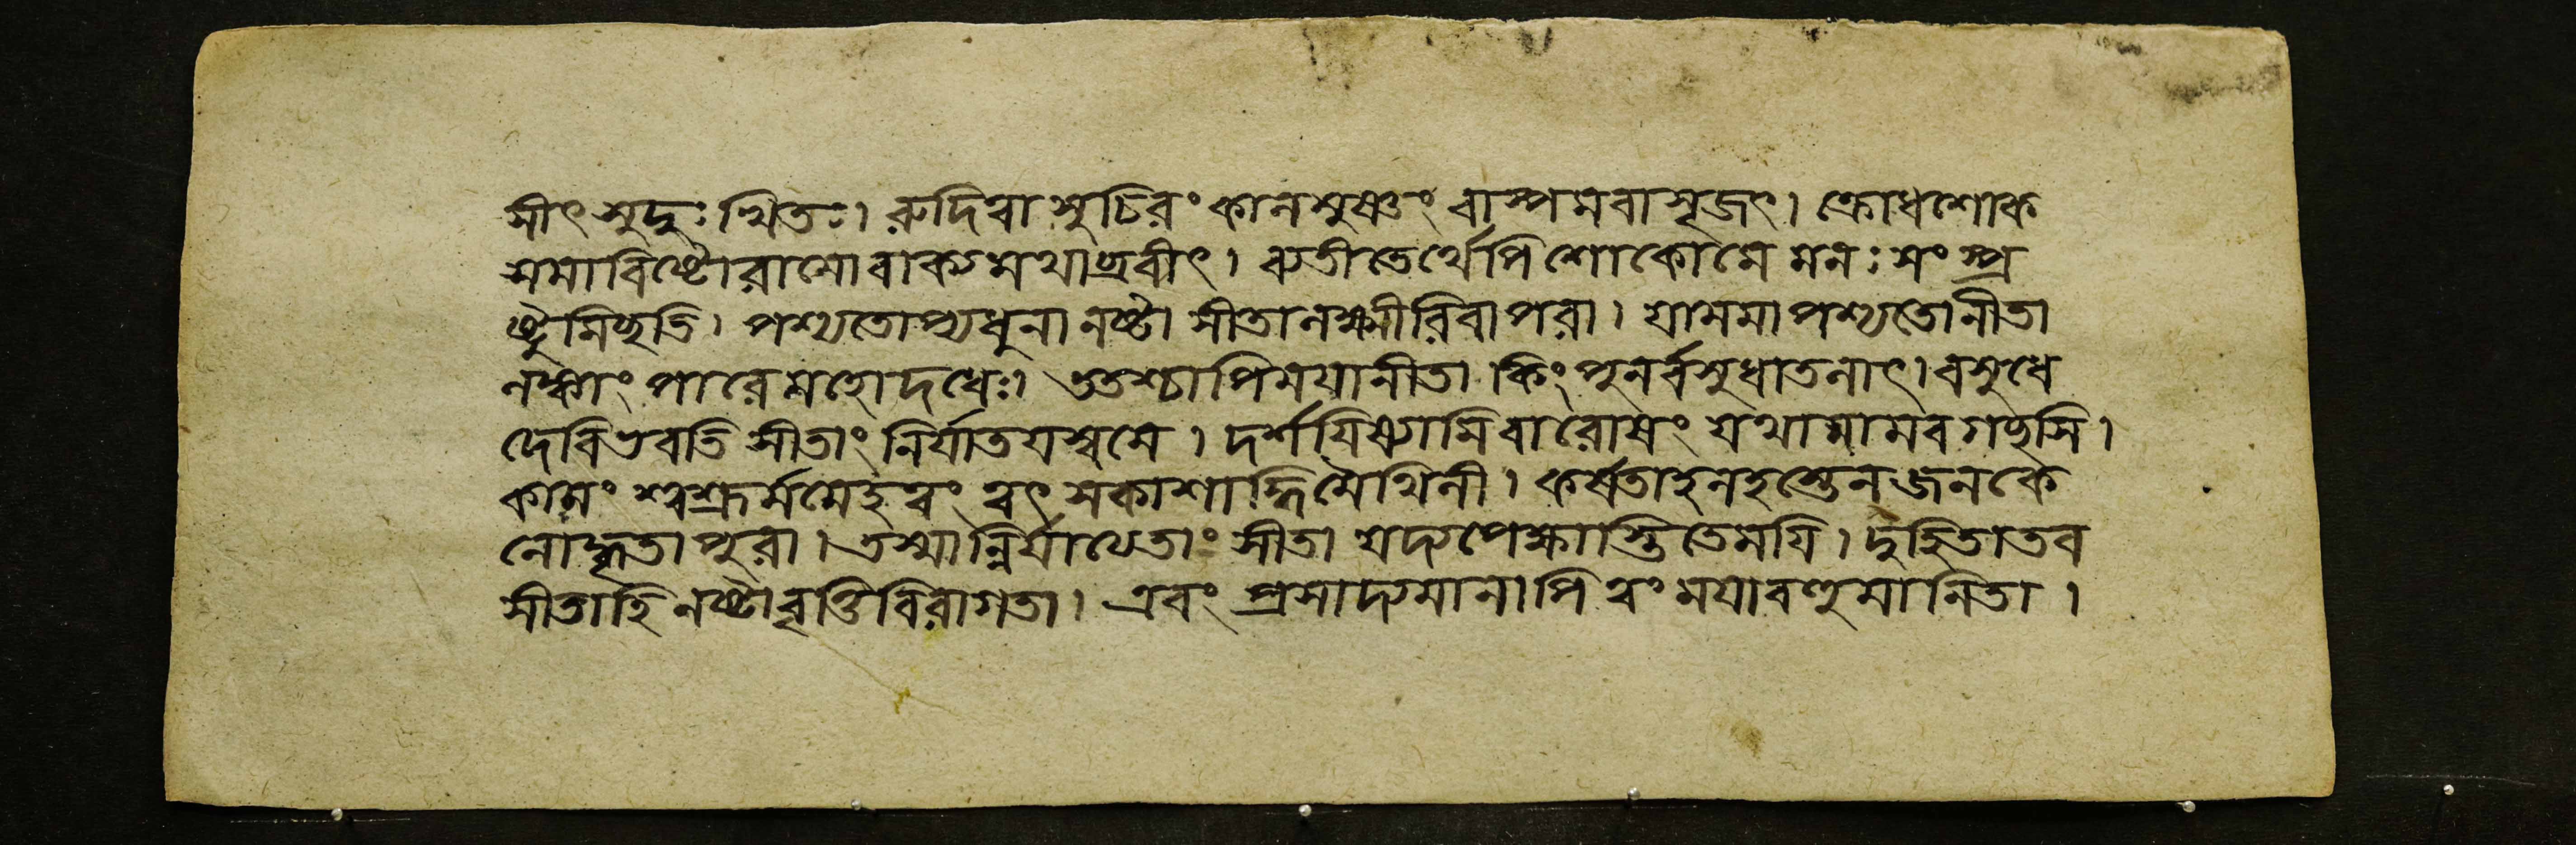 সীৎ সুদুঃখিতঃ। রুদিত্বা সুচিরং কালমুষ্ণং বাস্পমবাসৃজৎ। ক্রোধশোক
সমাবিষ্টোরামোবাক্যমথাব্রবীৎ। ব্যতীতের্থেপিশোকোমে মনঃ সংস্প্র
ষ্টুমিচ্ছতি। পশ্যতোপ্যধুনা নষ্টা সীতালক্ষ্মীরিবাপরা। যামমাপশ্যতোনীতা
লঙ্কাং পারেমহোদধেঃ। ততশ্চাপিময়ানীতা কিংপুনর্বসুধাতলাৎ। বসুধে
দেবিভবতি সীতাং নির্যাতয়স্বমে। দর্শয়িষ্যামিবারোষং যথামামবগচ্ছসি।
কামং শ্বশ্রুর্মমেহ ত্বং ত্বৎ সকাশাদ্ধিমৈথিলী। কর্ষতাহলহস্তেন জনকে
নোদ্ধৃতা পুরা। তস্মান্নির্যাত্যেতাং সীতা যদ্যপেক্ষাস্তিতেময়ি। দুহিতাতব
সীতাহি নষ্টাবৃত্তিবিরাগতা। এবং প্রসাদ্যমানাপি ত্বং ময়াবহুমানিতা।